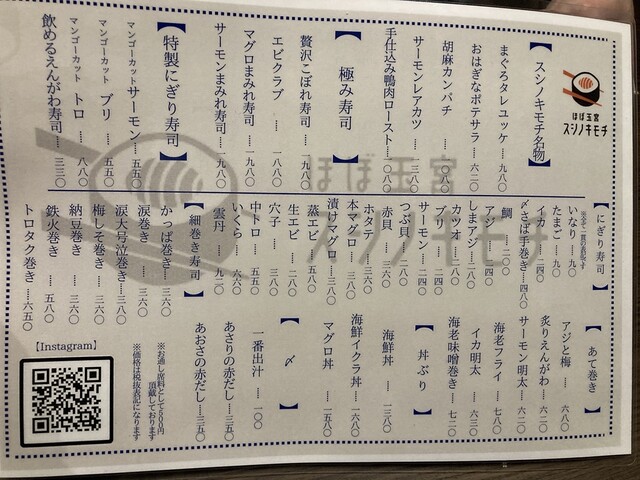 ほぼ玉宮
スシノキモチ
【スシノキモチ名物】
まぐろタレユッケ……一、九八〇
おはぎなポテサラ……六二〇
胡麻カンパチ……一、〇八〇
サーモンレアカツ……一、三八〇
手仕込み鴨肉ロースト……一、〇八〇
【極み寿司】
贅沢こぼれ寿司……一、九八〇
エビクラブ……一、八八〇
マグロまみれ寿司……一、九八〇
サーモンまみれ寿司……一、九八〇
【特製にぎり寿司】
マンゴーカットサーモン……五五〇
マンゴーカット ブリ……五五〇
マンゴーカット トロ……八八〇
飲めるえんがわ寿司……三三〇
【にぎり寿司】
※全て一貫の表記です
いなり……一九〇
たまご……一九〇
イカ……二四〇
〆さば手巻き……四八〇
鯛……二〇〇
アジ……二四〇
しまアジ……二八〇
カツオ……二八〇
ブリ……二四〇
サーモン……二四〇
つぶ貝……二八〇
赤貝……三六〇
ホタテ……三六〇
本マグロ……三八〇
漬けマグロ……三八〇
蒸エビ……五八〇
生エビ……二八〇
穴子……三八〇
中トロ……五五〇
いくら……六六〇
雲丹……九二〇
【細巻き寿司】
かっぱ巻き……三六〇
涙巻き……三六〇
涙大号泣巻き……三八〇
梅しそ巻き……三六〇
納豆巻き……三六〇
鉄火巻き……五八〇
トロタク巻き……六五〇
【あて巻き】
アジと梅……六八〇
炙りえんがわ……六二〇
サーモン明太……六二〇
海老フライ……七八〇
イカ明太……六三〇
海老味噌巻き……七二〇
【丼ぶり】
海鮮丼……一、三八〇
海鮮イクラ丼……一、六八〇
マグロ丼……一、五八〇
【〆】
一番出汁……一〇〇
あさりの赤だし……三五〇
あおさの赤だし……三五〇
※お通し席料として300円
頂戴しております
※価格は税抜表記になります
【Instagram】
ほぼ玉宮
スシノキモチ